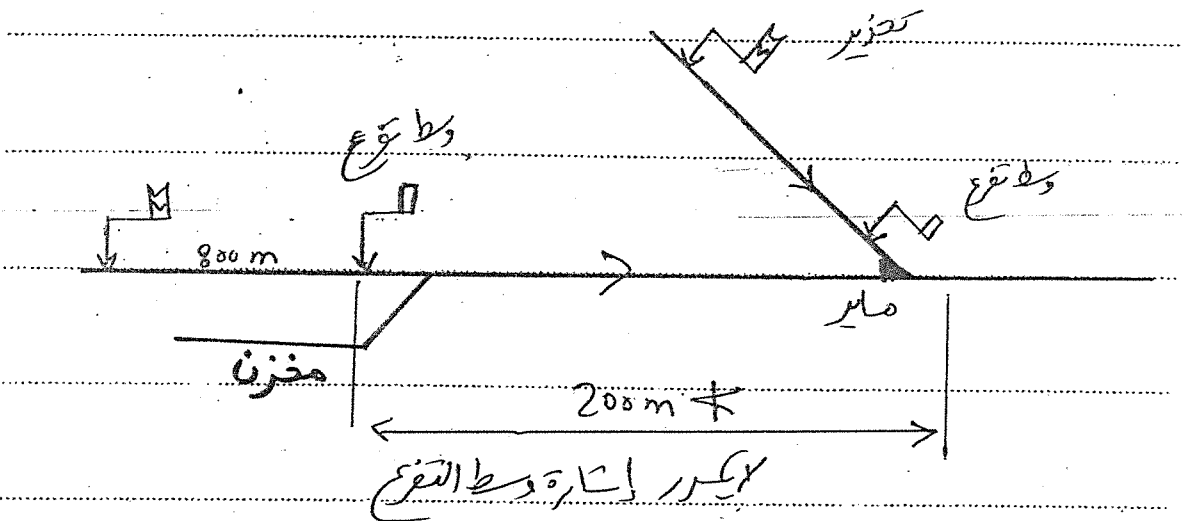 تحذير
وسط تفرع
وسط تفرع
800 m
ماير
مخزن
200 m
لا يكرر إشارة وسط التفرع